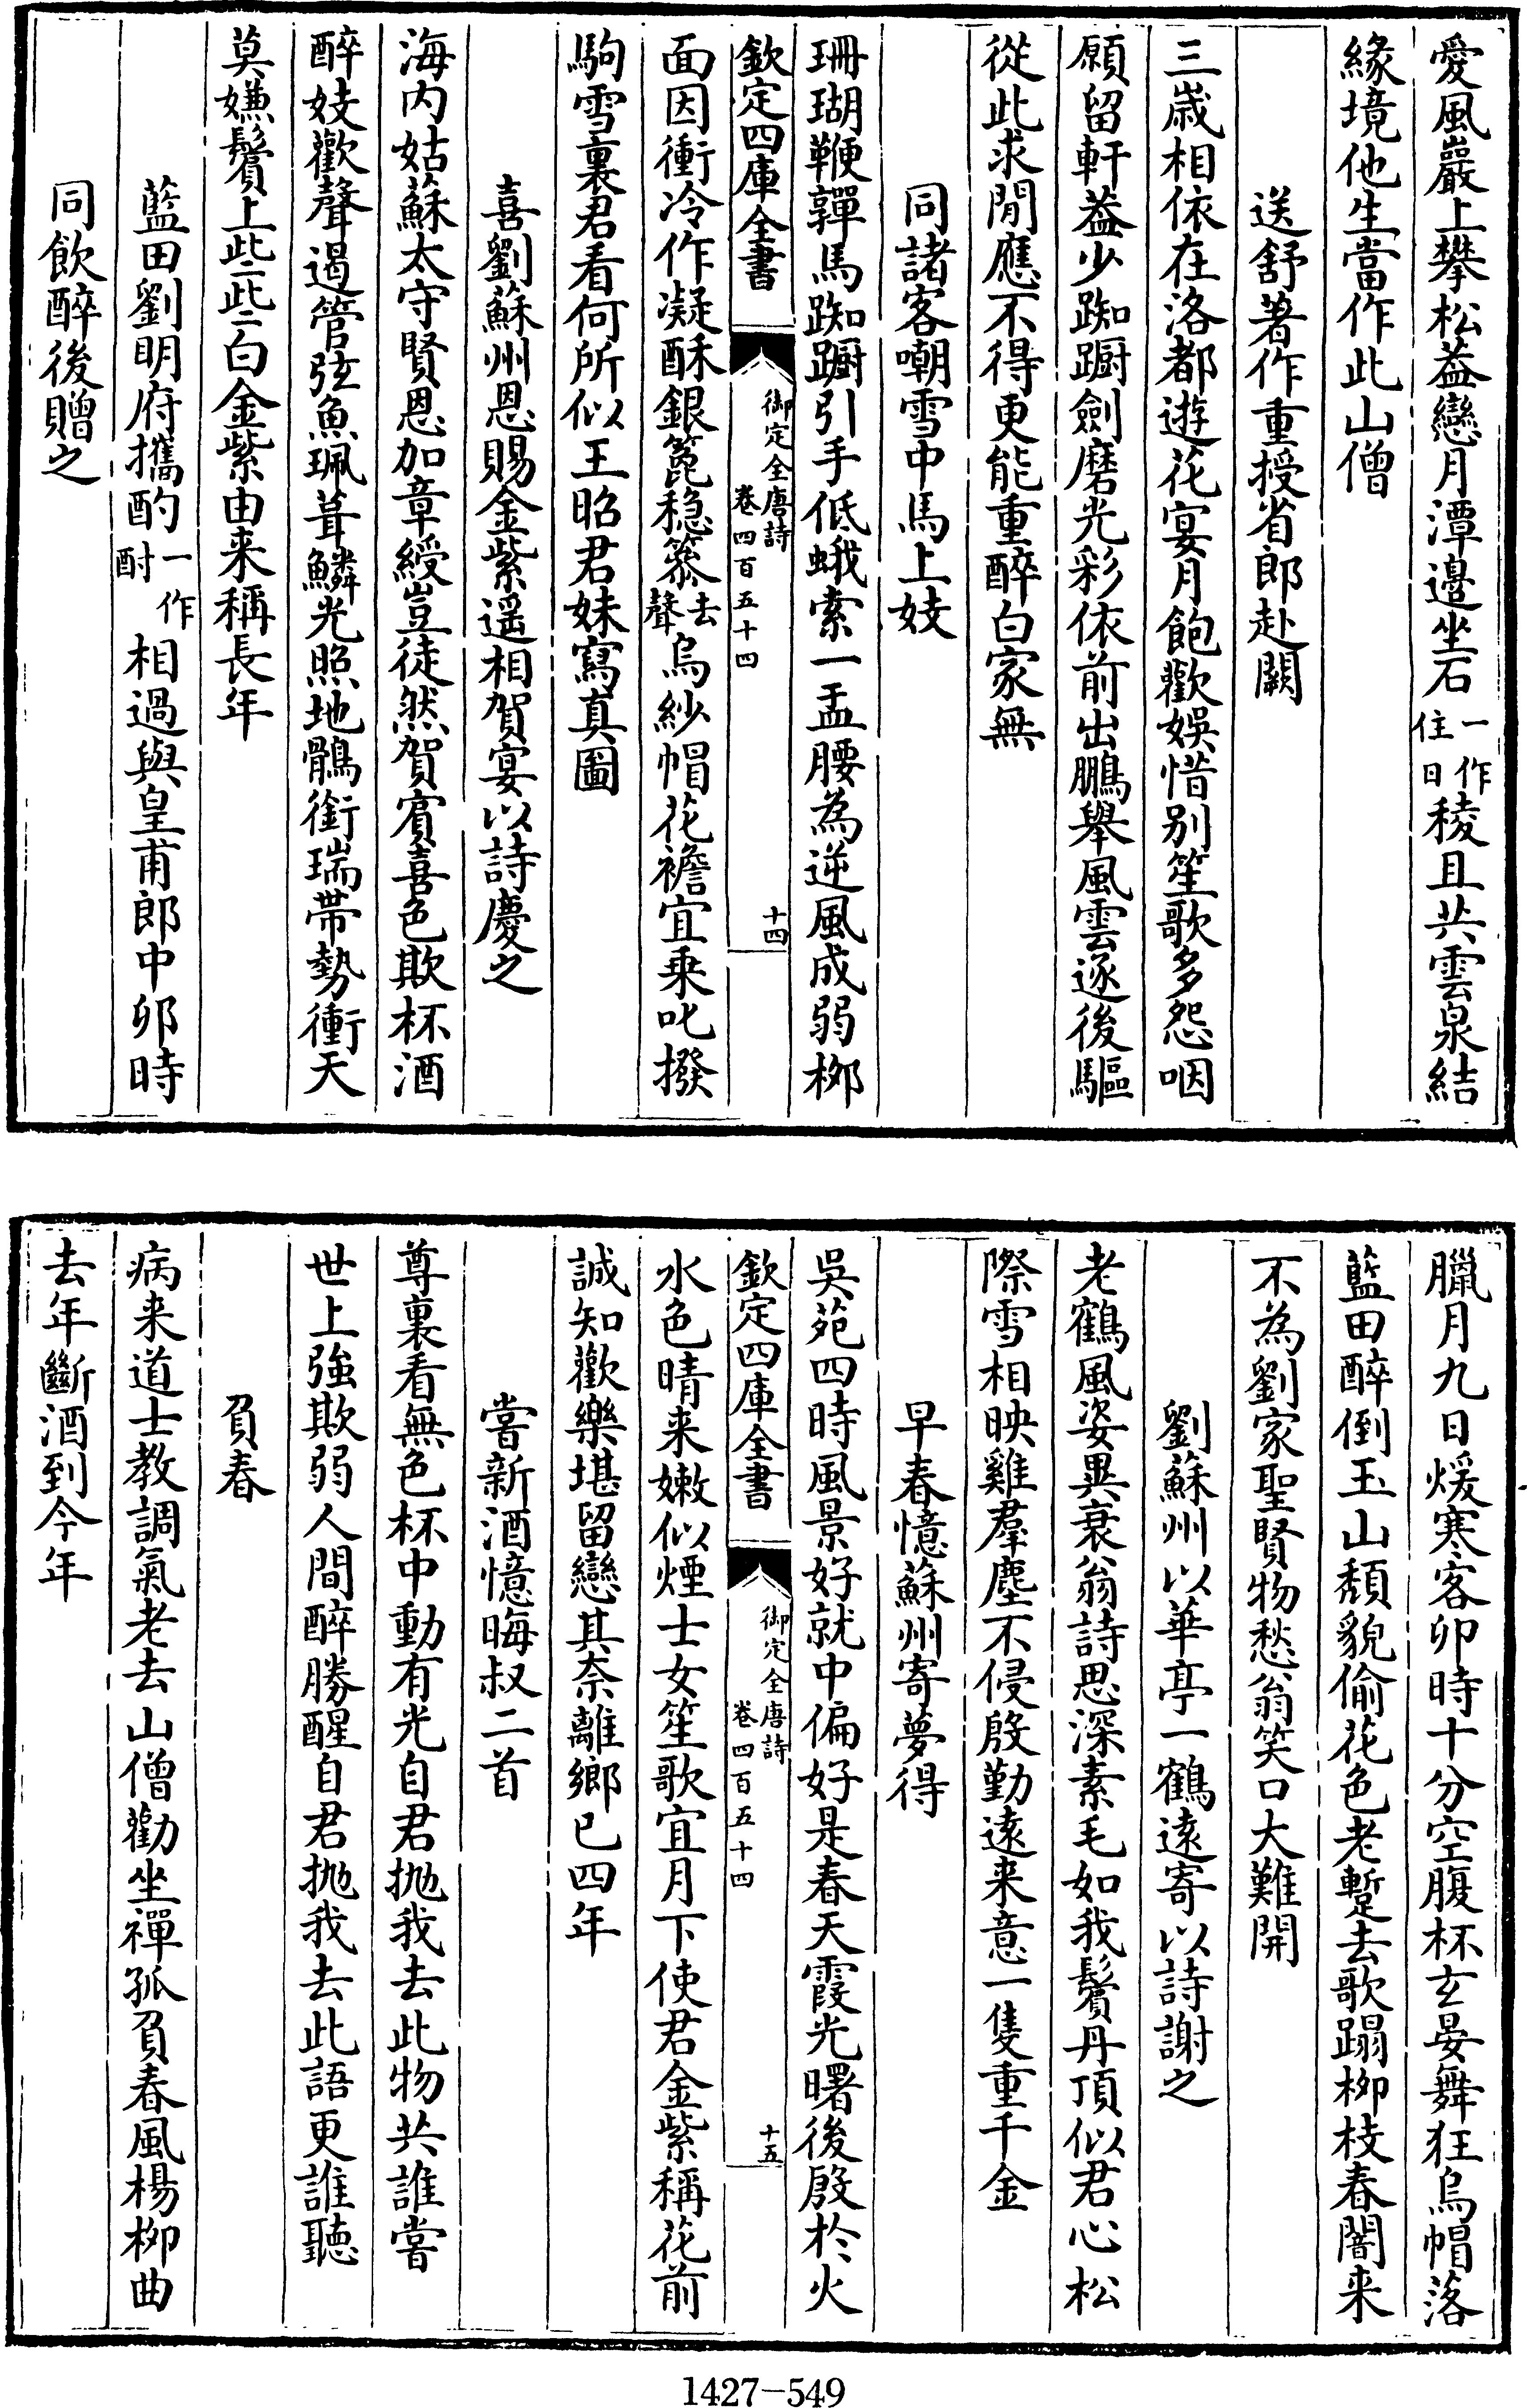 愛風巖上攀松葢戀月潭邉坐石一作住日稜且共雲泉結
緣境他生當作此山僧
送舒著作重授省郎赴闕
三歳相依在洛都遊花宴月飽歡娱惜别笙歌多怨咽
願留軒葢少踟蹰劍磨光彩依前出鵬舉風雲逐後驅
從此求閒應不得更能重醉白家無
同諸客嘲雪中馬上妓
珊瑚鞭亸馬踟蹰引手低蛾索一盂腰為逆風成弱栁
欽定四庫全書
御定全唐詩
卷四百五十四
十四
面因衝冷作凝酥銀篦穏篸去聲烏紗帽花襜宜乗叱撥
駒雪裏君看何所似王昭君妹寫真圖
喜劉蘇州恩賜金紫遥相賀宴以詩慶之
海内姑蘇太守賢恩加章綬豈徒然賀賓喜色欺杯酒
醉妓歡聲遏管弦魚珮葺鱗光照地鶻銜瑞帶勢衝天
莫嫌鬢上些些白金紫由来稱長年
藍田劉明府攜酌一作酎相過與皇甫郎中卯時
同飲醉後贈之
臘月九日煖寒客卯時十分空腹杯玄晏舞狂烏帽落
藍田醉倒玉山頽貌偷花色老蹔去歌蹋栁枝春闇来
不為劉家聖賢物愁翁笑口大難開
劉蘇州以華亭一鶴遠寄以詩謝之
老鶴風姿異衰翁詩思深素毛如我鬢丹頂似君心松
際雪相映雞羣塵不侵殷勤遠来意一隻重千金
早春憶蘇州寄夢得
吳苑四時風景好就中偏好是春天霞光曙後殷於火
欽定四庫全書
御定全唐詩
卷四百五十四
十五
水色晴来嫩似煙士女笙歌宜月下使君金紫稱花前
誠知歡樂堪留戀其奈離鄉已四年
嘗新酒憶晦叔二首
尊裏看無色杯中動有光自君抛我去此物共誰嘗
世上強欺弱人間醉勝醒自君抛我去此語更誰聽
負春
病来道士教調氣老去山僧勸坐禪孤負春風楊栁曲
去年斷酒到今年
1427-549